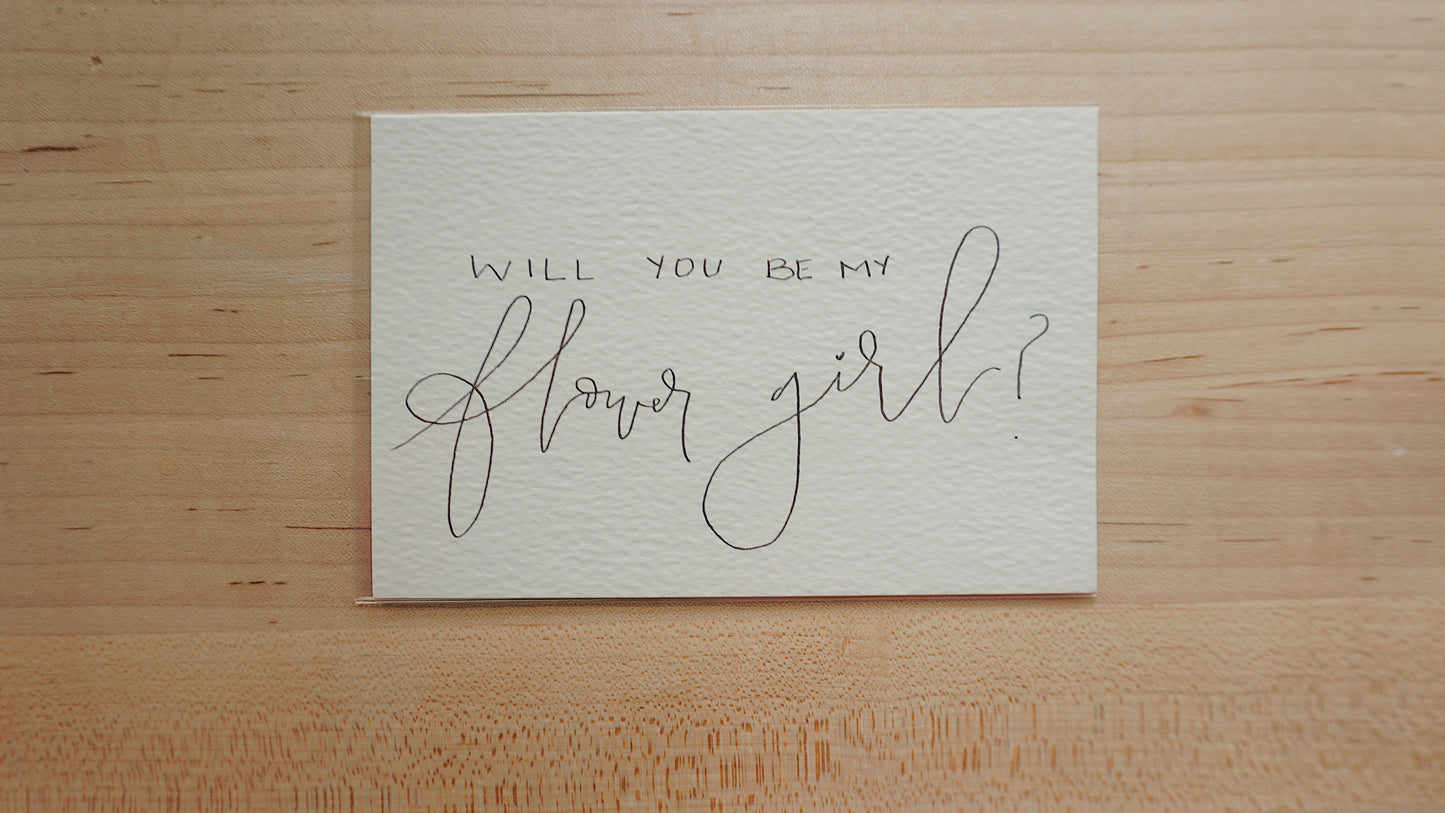 WILL YOU BE MY
flower girl?